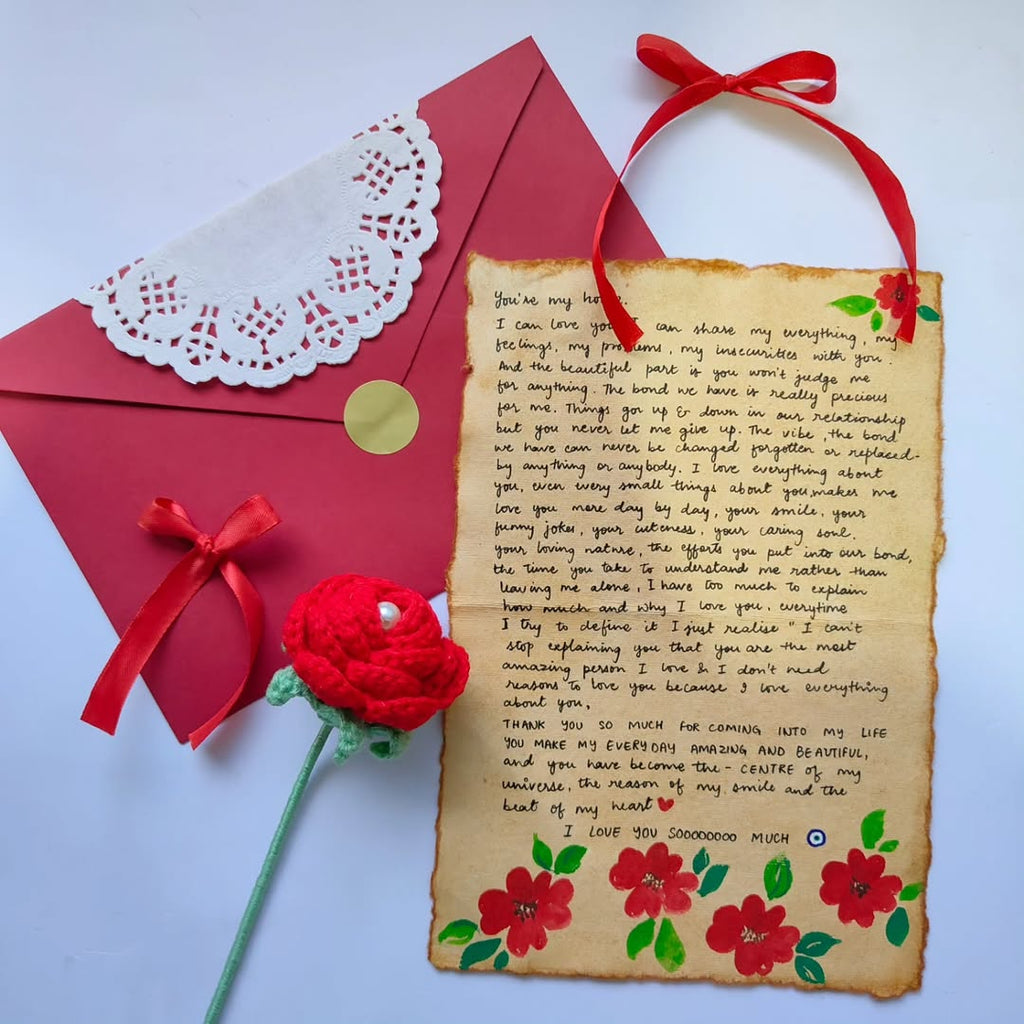 You're my
I can love you I can share my everything, my
feelings, my problems, my insecurities with you.
And the beautiful part is you won't judge me
for anything. The bond we have is really precious
for me. Things goes up & down in our relationship
but you never let me give up. The vibe, the bond
we have can never be changed forgotten or replaced-
by anything or anybody. I love everything about
you, even every small things about you, makes me
love you more day by day, your smile, your
funny jokes, your cuteness, your caring soul.
your loving nature, the efforts you put into our bond,
the time you take to understand me rather than
leaving me alone, I have too much to explain
how much and why I love you. everytime
I try to define it I just realise " I can't
stop explaining you that you are the most
amazing person I love & I don't need
reasons to love you because I love everything
about you,
THANK YOU SO MUCH FOR COMING INTO MY LIFE
YOU MAKE MY EVERYDAY AMAZING AND BEAUTIFUL,
and you have become the - CENTRE of my
universe, the reason of my smile and the
beat of my heart
I LOVE YOU SOOOOOOOO MUCH